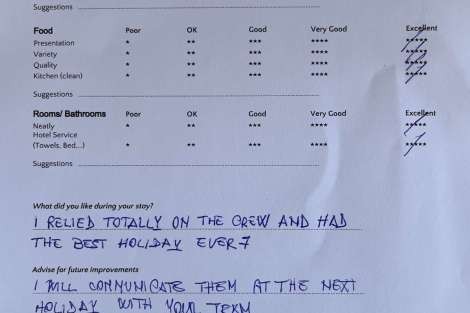 Suggestions
Food Poor OK Good Very Good Excellent
Presentation * ** *** **** *****
Variety * ** *** **** *****
Quality * ** *** **** *****
Kitchen (clean) * ** *** **** *****
Suggestions
Rooms/ Bathrooms Poor OK Good Very Good Excellent
Neatly * ** *** **** *****
Hotel Service
(Towels, Bed,...) * ** *** **** *****
Suggestions
What did you like during your stay?
I RELIED TOTALLY ON THE CREW AND HAD
THE BEST HOLIDAY EVER7
Advise for future improvements
I WILL COMMUNICATE THEM AT THE NEXT
HOLIDAY WITH YOUR TEAM